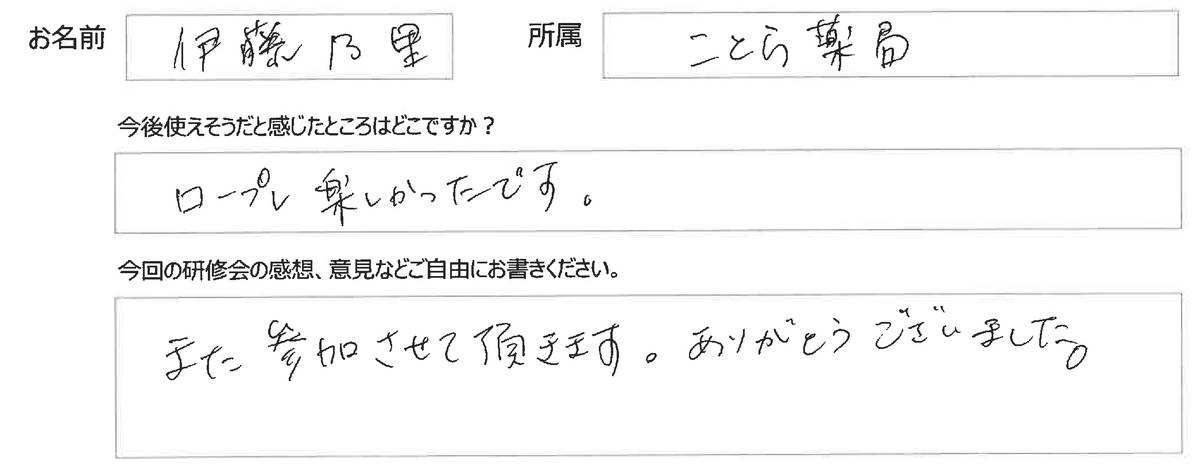 お名前 伊藤乃里 所属 ことら薬局
今後使えそうだと感じたところはどこですか？
ロープレ楽しかったです。
今回の研修会の感想、意見などご自由にお書きください。
また参加させて頂きます。ありがとうございました。